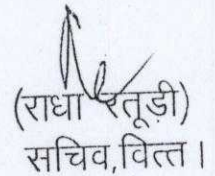 (राधा रतूड़ी)
सचिव,वित्त।